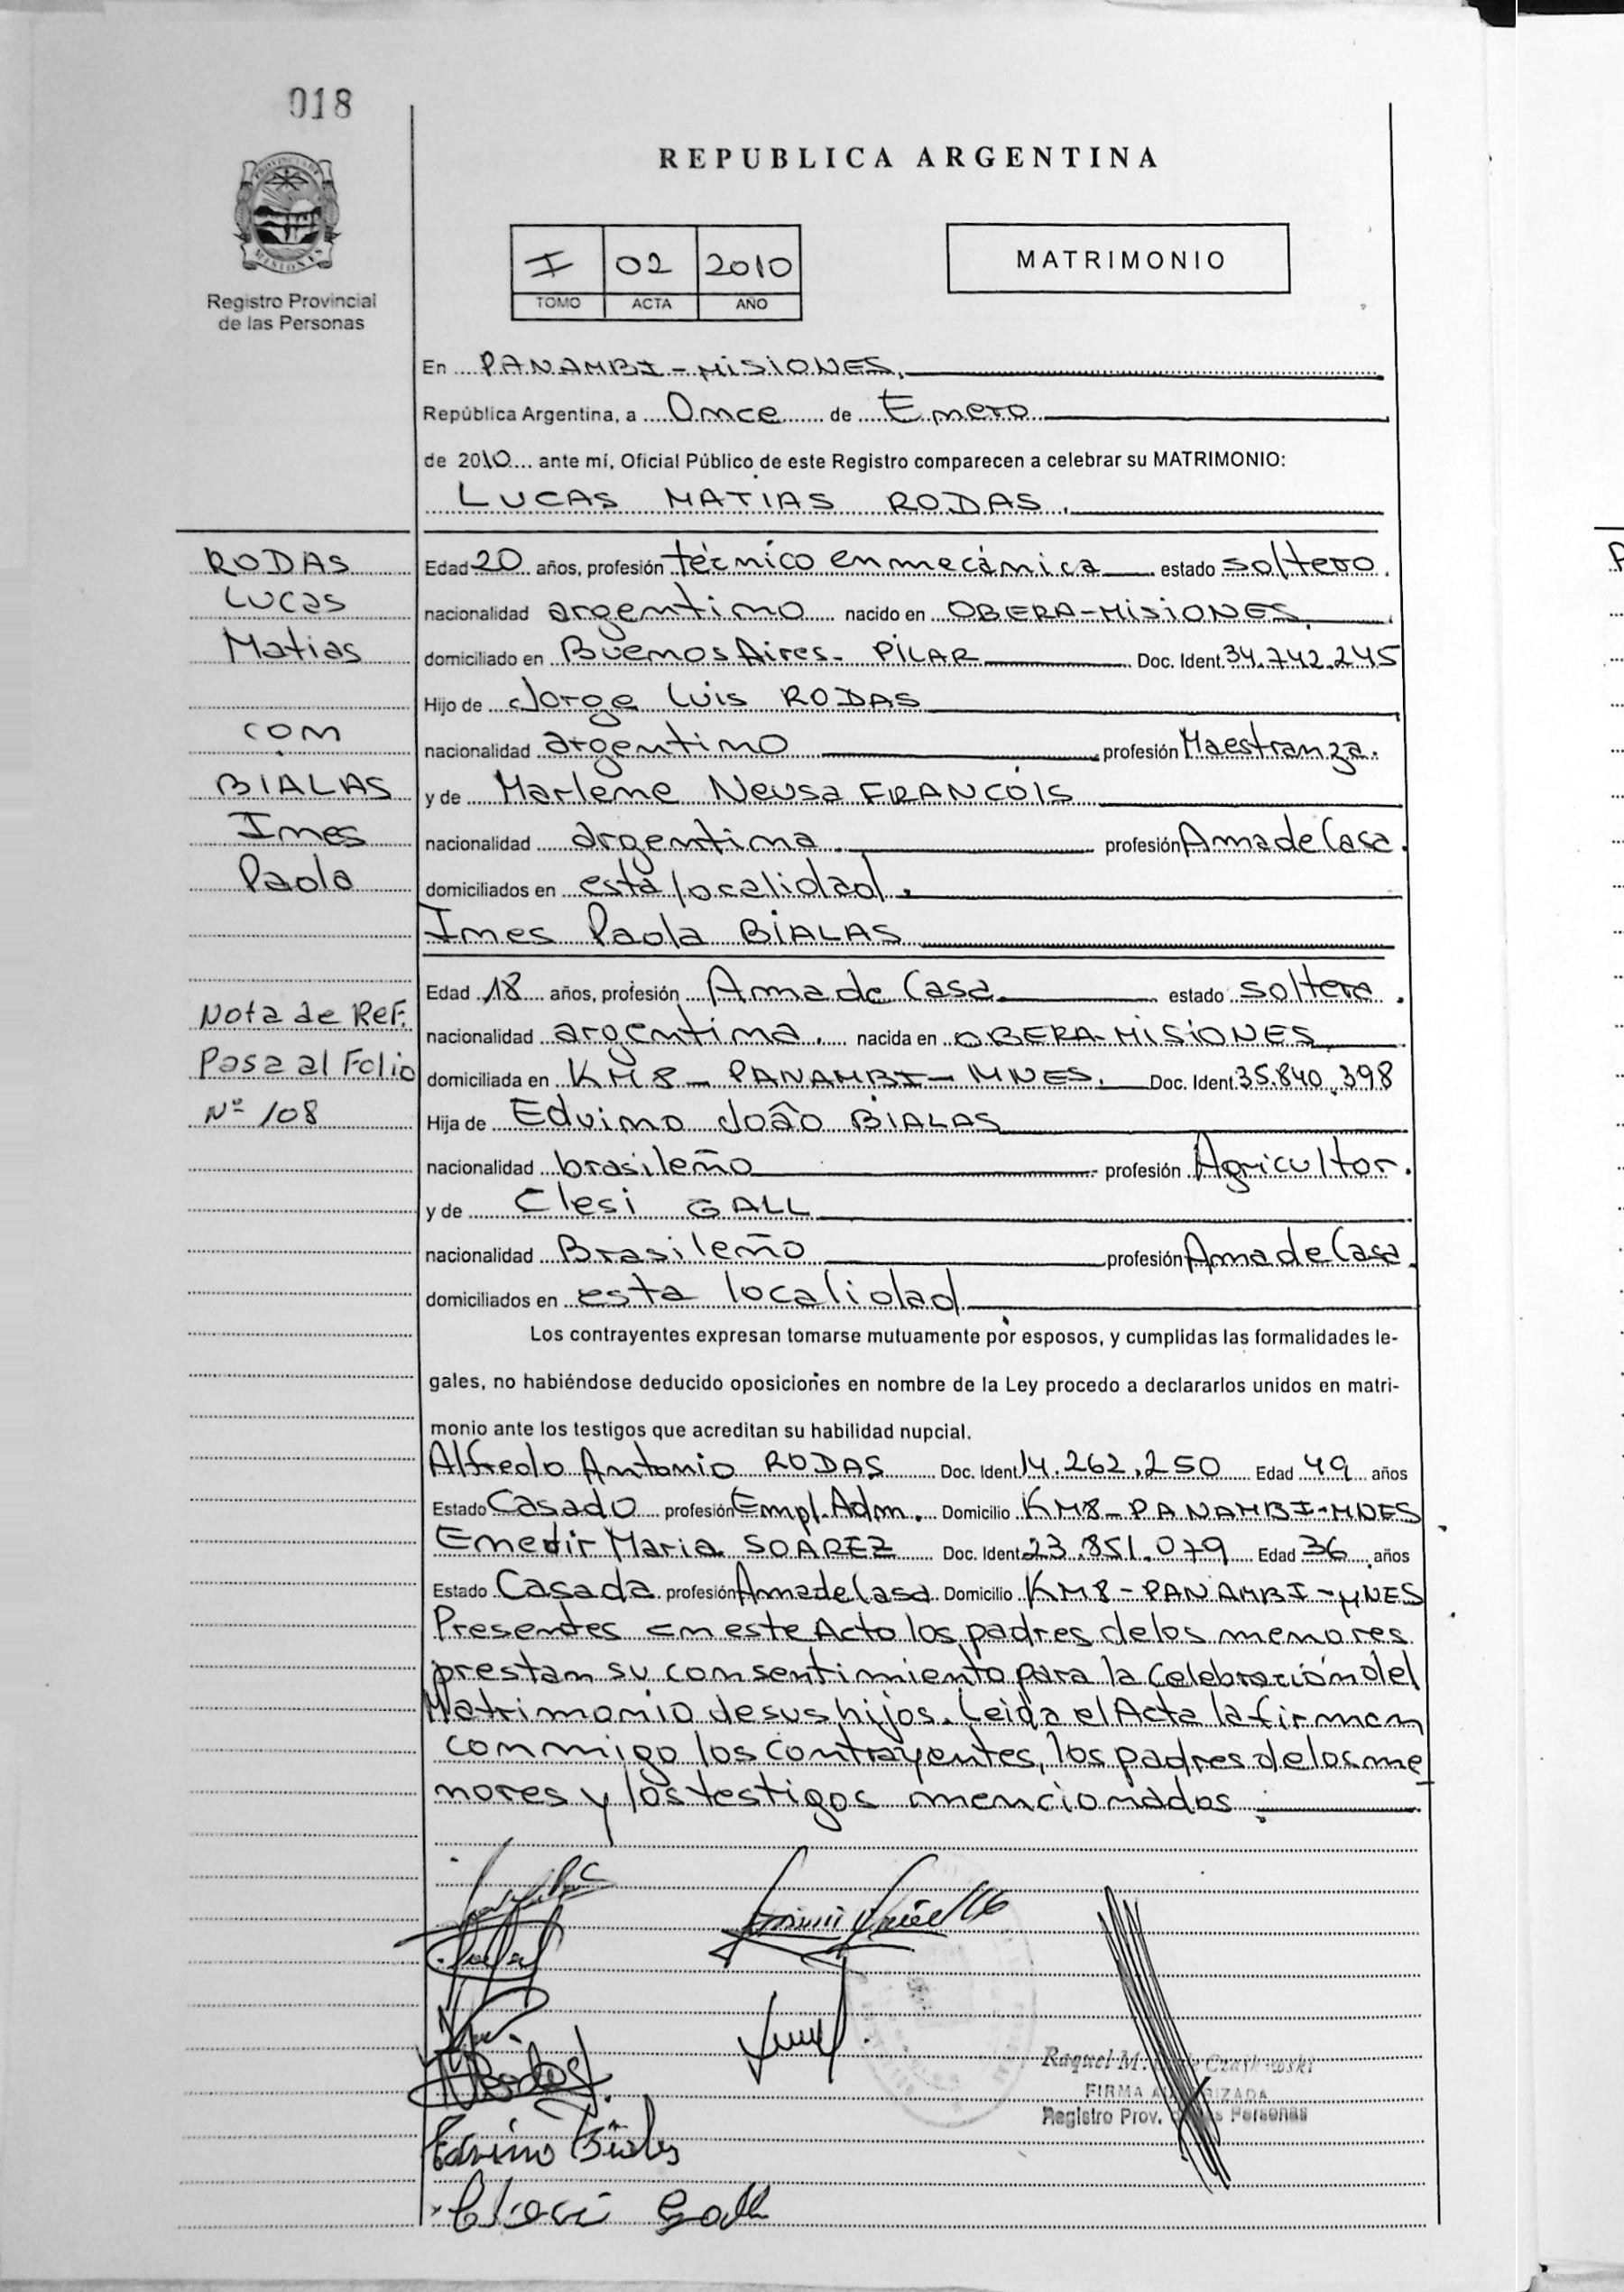 018
REPUBLICA ARGENTINA
I 02 2010
TOMO ACTA AÑO
MATRIMONIO
PROVINCIA DE
MISIONES
Registro Provincial
de las Personas
En PANAMBI - MISIONES.
República Argentina, a Once de Enero
de 2010 ante mí, Oficial Público de este Registro comparecen a celebrar su MATRIMONIO:
LUCAS MATIAS RODAS.
RODAS
Lucas
Matias
con
BIALAS
Ines
Paola
Nota de Ref.
Pasa al Folio
Nº 108
Edad 20 años, profesión técnico en mecánica estado soltero.
nacionalidad argentino nacido en OBERA-MISIONES.
domiciliado en Buenos Aires- PILAR Doc. Ident. 34.742.245
Hijo de Jorge Luis RODAS
nacionalidad argentino profesión Maestranza.
y de Marlene Neusa FRANCOIS
nacionalidad argentina. profesión Ama de Casa.
domiciliados en esta localidad.
Ines Paola BIALAS
Edad 18 años, profesión Ama de Casa. estado soltera.
nacionalidad argentina. nacida en OBERA-MISIONES
domiciliada en KM8 - PANAMBI - MNES. Doc. Ident. 35.840.398
Hija de Edvino João BIALAS
nacionalidad brasileño profesión Agricultor.
y de Clesi GALL
nacionalidad Brasileño profesión Ama de Casa.
domiciliados en esta localidad
Los contrayentes expresan tomarse mutuamente por esposos, y cumplidas las formalidades le-
gales, no habiéndose deducido oposiciones en nombre de la Ley procedo a declararlos unidos en matri-
monio ante los testigos que acreditan su habilidad nupcial.
Alfredo Antonio RODAS Doc. Ident. 14.262.250 Edad 49 años
Estado Casado profesión Empl. Adm. Domicilio KM8-PANAMBI-MNES
Enedir Maria SOAREZ Doc. Ident. 23.851.079 Edad 36 años
Estado Casada profesión Ama de Casa. Domicilio KM8-PANAMBI-MNES
Presentes en este Acto los padres de los menores
prestan su consentimiento para la Celebración del
Matrimonio de sus hijos. Leida el Acta la firman
conmigo los contrayentes, los padres de los me
nores y los testigos mencionados.
Edvino Bialas
Gall
Raquel M.
FIRMA AUTORIZADA
Registro Prov. de las Personas